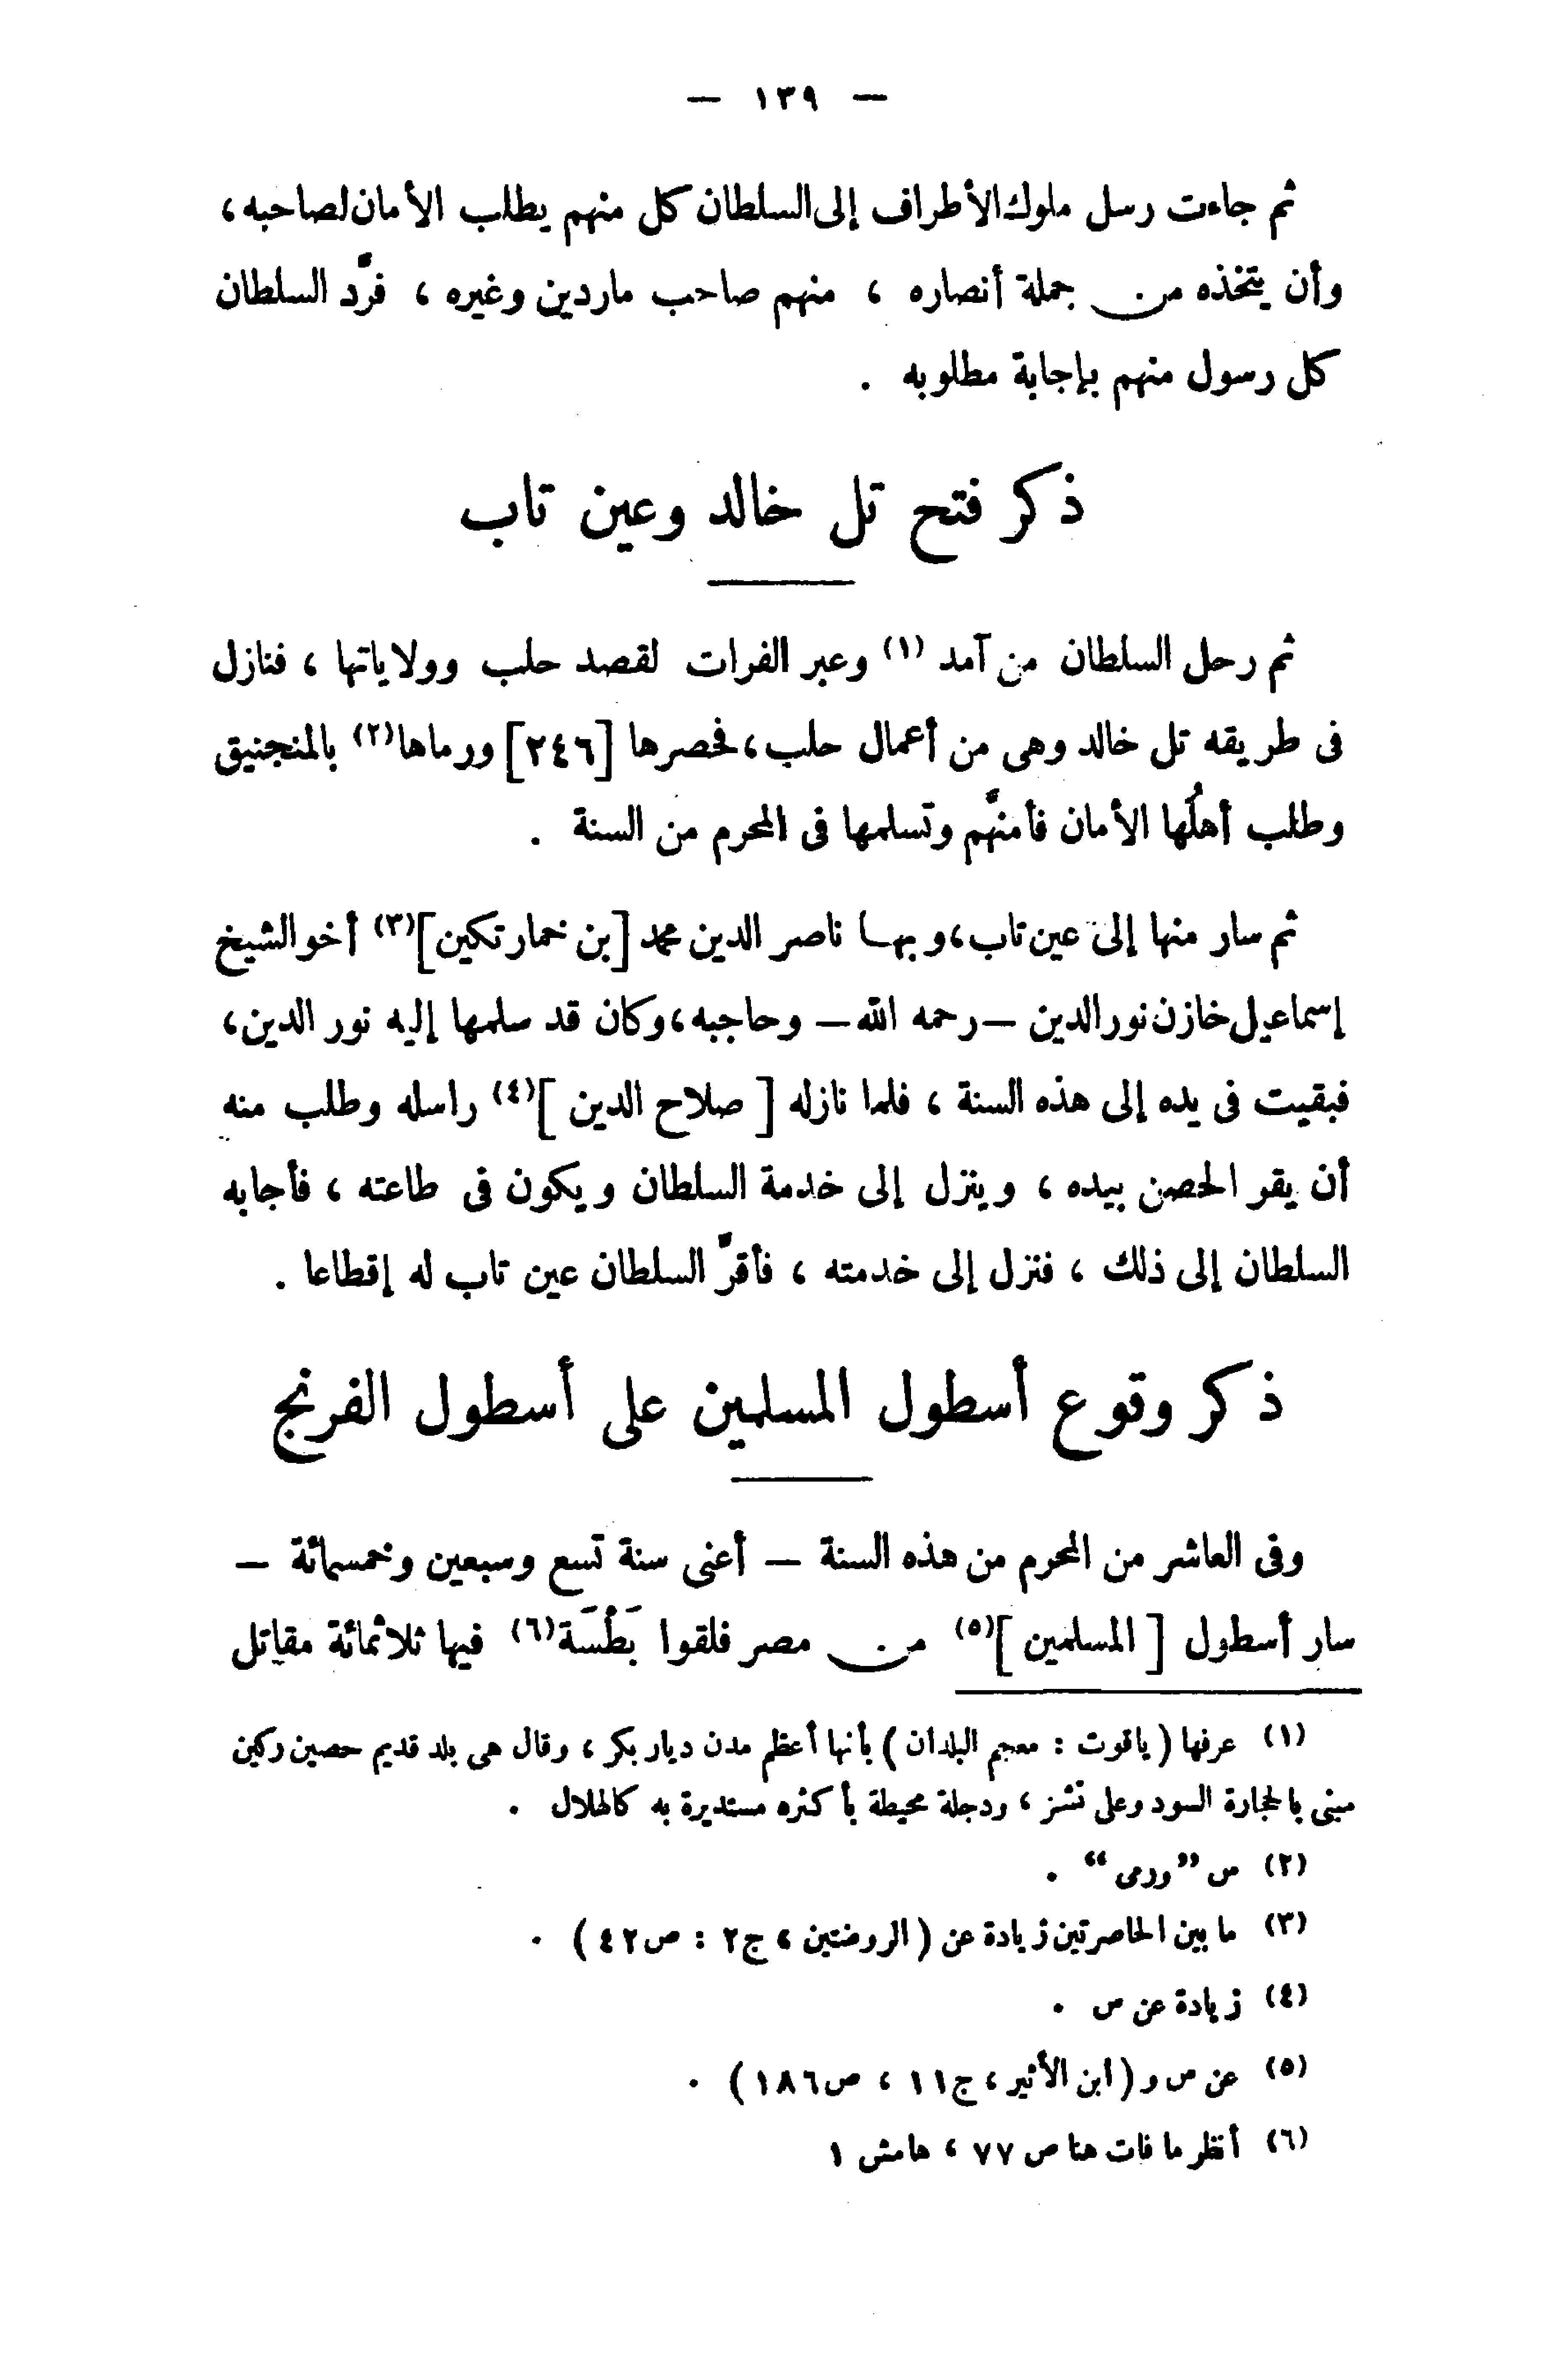 — ١٣٩ —
ثم جاءت رسل ملوك الأطراف إلى السلطان كل منهم يطلب الأمان لصاحبه ،
وأن يتخذه من جملة أنصاره ، منهم صاحب ماردين وغيره ، فردَّ السلطان
كل رسول منهم بإجابة مطلوبه .
ذكر فتح تل خالد وعين تاب
ثم رحل السلطان من آمد (١) وعبر الفرات لقصد حلب وولاياتها ، فنازل
فى طريقه تل خالد وهى من أعمال حلب ، فحصرها [٢٤٦] ورماها (٢) بالمنجنيق
وطلب أهلُها الأمان فأمنَّهم وتسلمها فى المحرم من السنة .
ثم سار منها إلى عين تاب ، وبها ناصر الدين محمد [بن خمارتكين] (٣) أخو الشيخ
إسماعيل خازن نور الدين — رحمه الله — وحاجبه ، وكان قد سلمها إليه نور الدين ،
فبقيت فى يده إلى هذه السنة ، فلما نازله [ صلاح الدين ] (٤) راسله وطلب منه
أن يقر الحصن بيده ، وينزل إلى خدمة السلطان ويكون فى طاعته ، فأجابه
السلطان إلى ذلك ، فنزل إلى خدمته ، فأقرَّ السلطان عين تاب له إقطاعا .
ذكر وقوع أسطول المسلمين على أسطول الفرنج
وفى العاشر من المحرم من هذه السنة — أعنى سنة تسع وسبعين وخمسمائة —
سار أسطول [ المسلمين ] (٥) من مصر فلقوا بَطْسَة (٦) فيها ثلاثمائة مقاتل
(١) عرفها ( ياقوت : معجم البلدان ) بأنها أعظم مدن ديار بكر ، وقال هى بلد قديم حصين ركين
مبنى بالحجارة السود وعلى نشز ، ودجلة محيطة بأكثره مستديرة به كالهلال .
(٢) س " ورمى " .
(٣) ما بين الحاصرتين زيادة عن ( الروضتين ، ج٢ : ص ٤٢ ) .
(٤) زيادة عن س .
(٥) عن س و ( ابن الأثير ، ج ١١ ، ص ١٨٦ ) .
(٦) أنظر ما فات هنا ص ٧٧ ، هامش ١